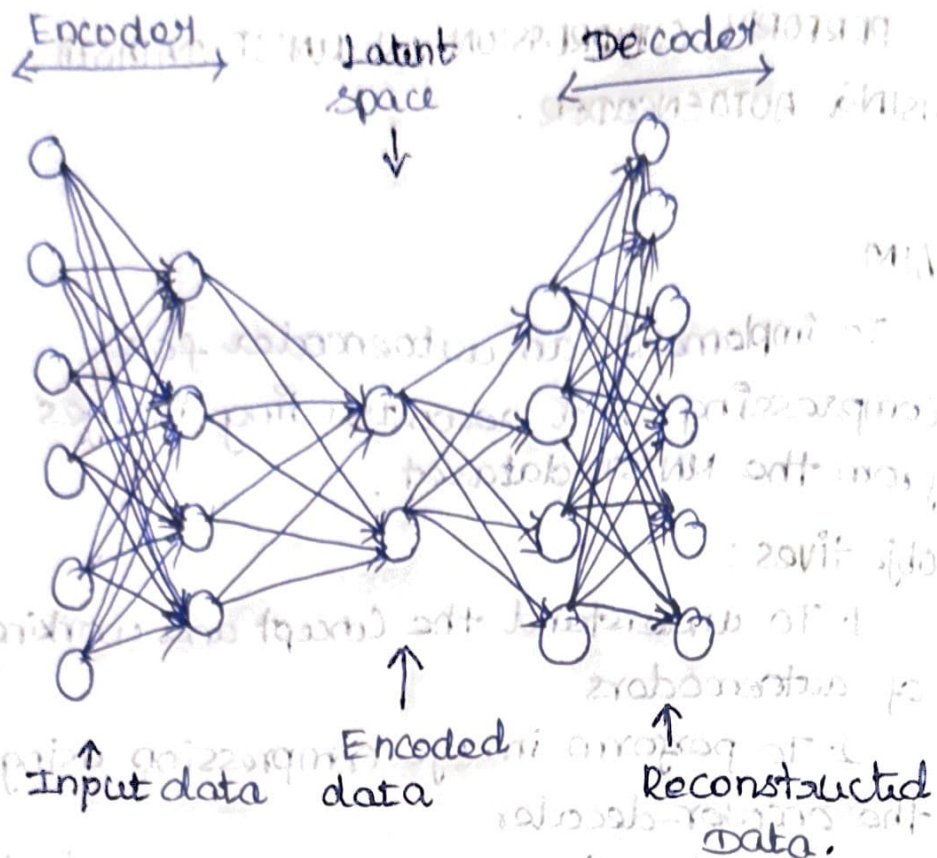 Encoder
Latent
space
Decoder
Input data
Encoded
data
Reconstructed
Data.